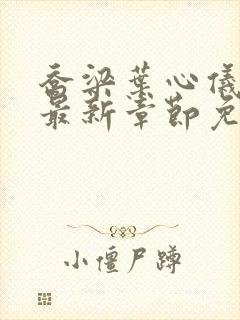 乔梁叶心仪
最新章节免
小僵尸蹲